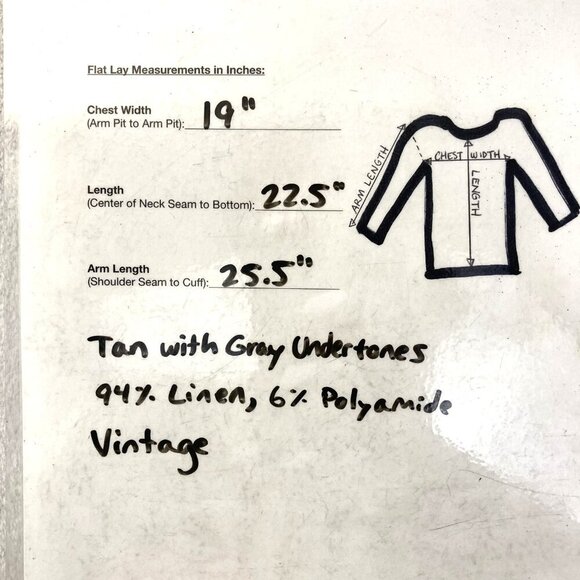 Flat Lay Measurements in Inches:
Chest Width
(Arm Pit to Arm Pit): 19"
Length
(Center of Neck Seam to Bottom): 22.5"
Arm Length
(Shoulder Seam to Cuff): 25.5"
ARM LENGTH
CHEST WIDTH
LENGTH
Tan with Gray Undertones
94% Linen, 6% Polyamide
Vintage